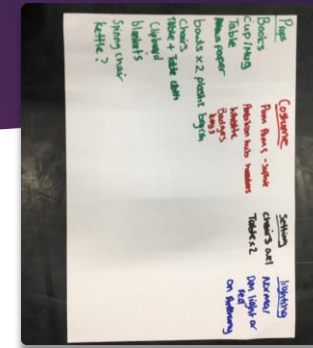 Props
Books
Cup/Mug
Table
Newspaper
bowls x2 plastic
Chairs
Table + Table cloth
Clipboard
blankets
Spinny chair
kettle?
Costume
Pom Poms -
whistle
Badges
keys
Setting
chairs
Table x2
lighting
Normal
Dim light or
red
on Anthony